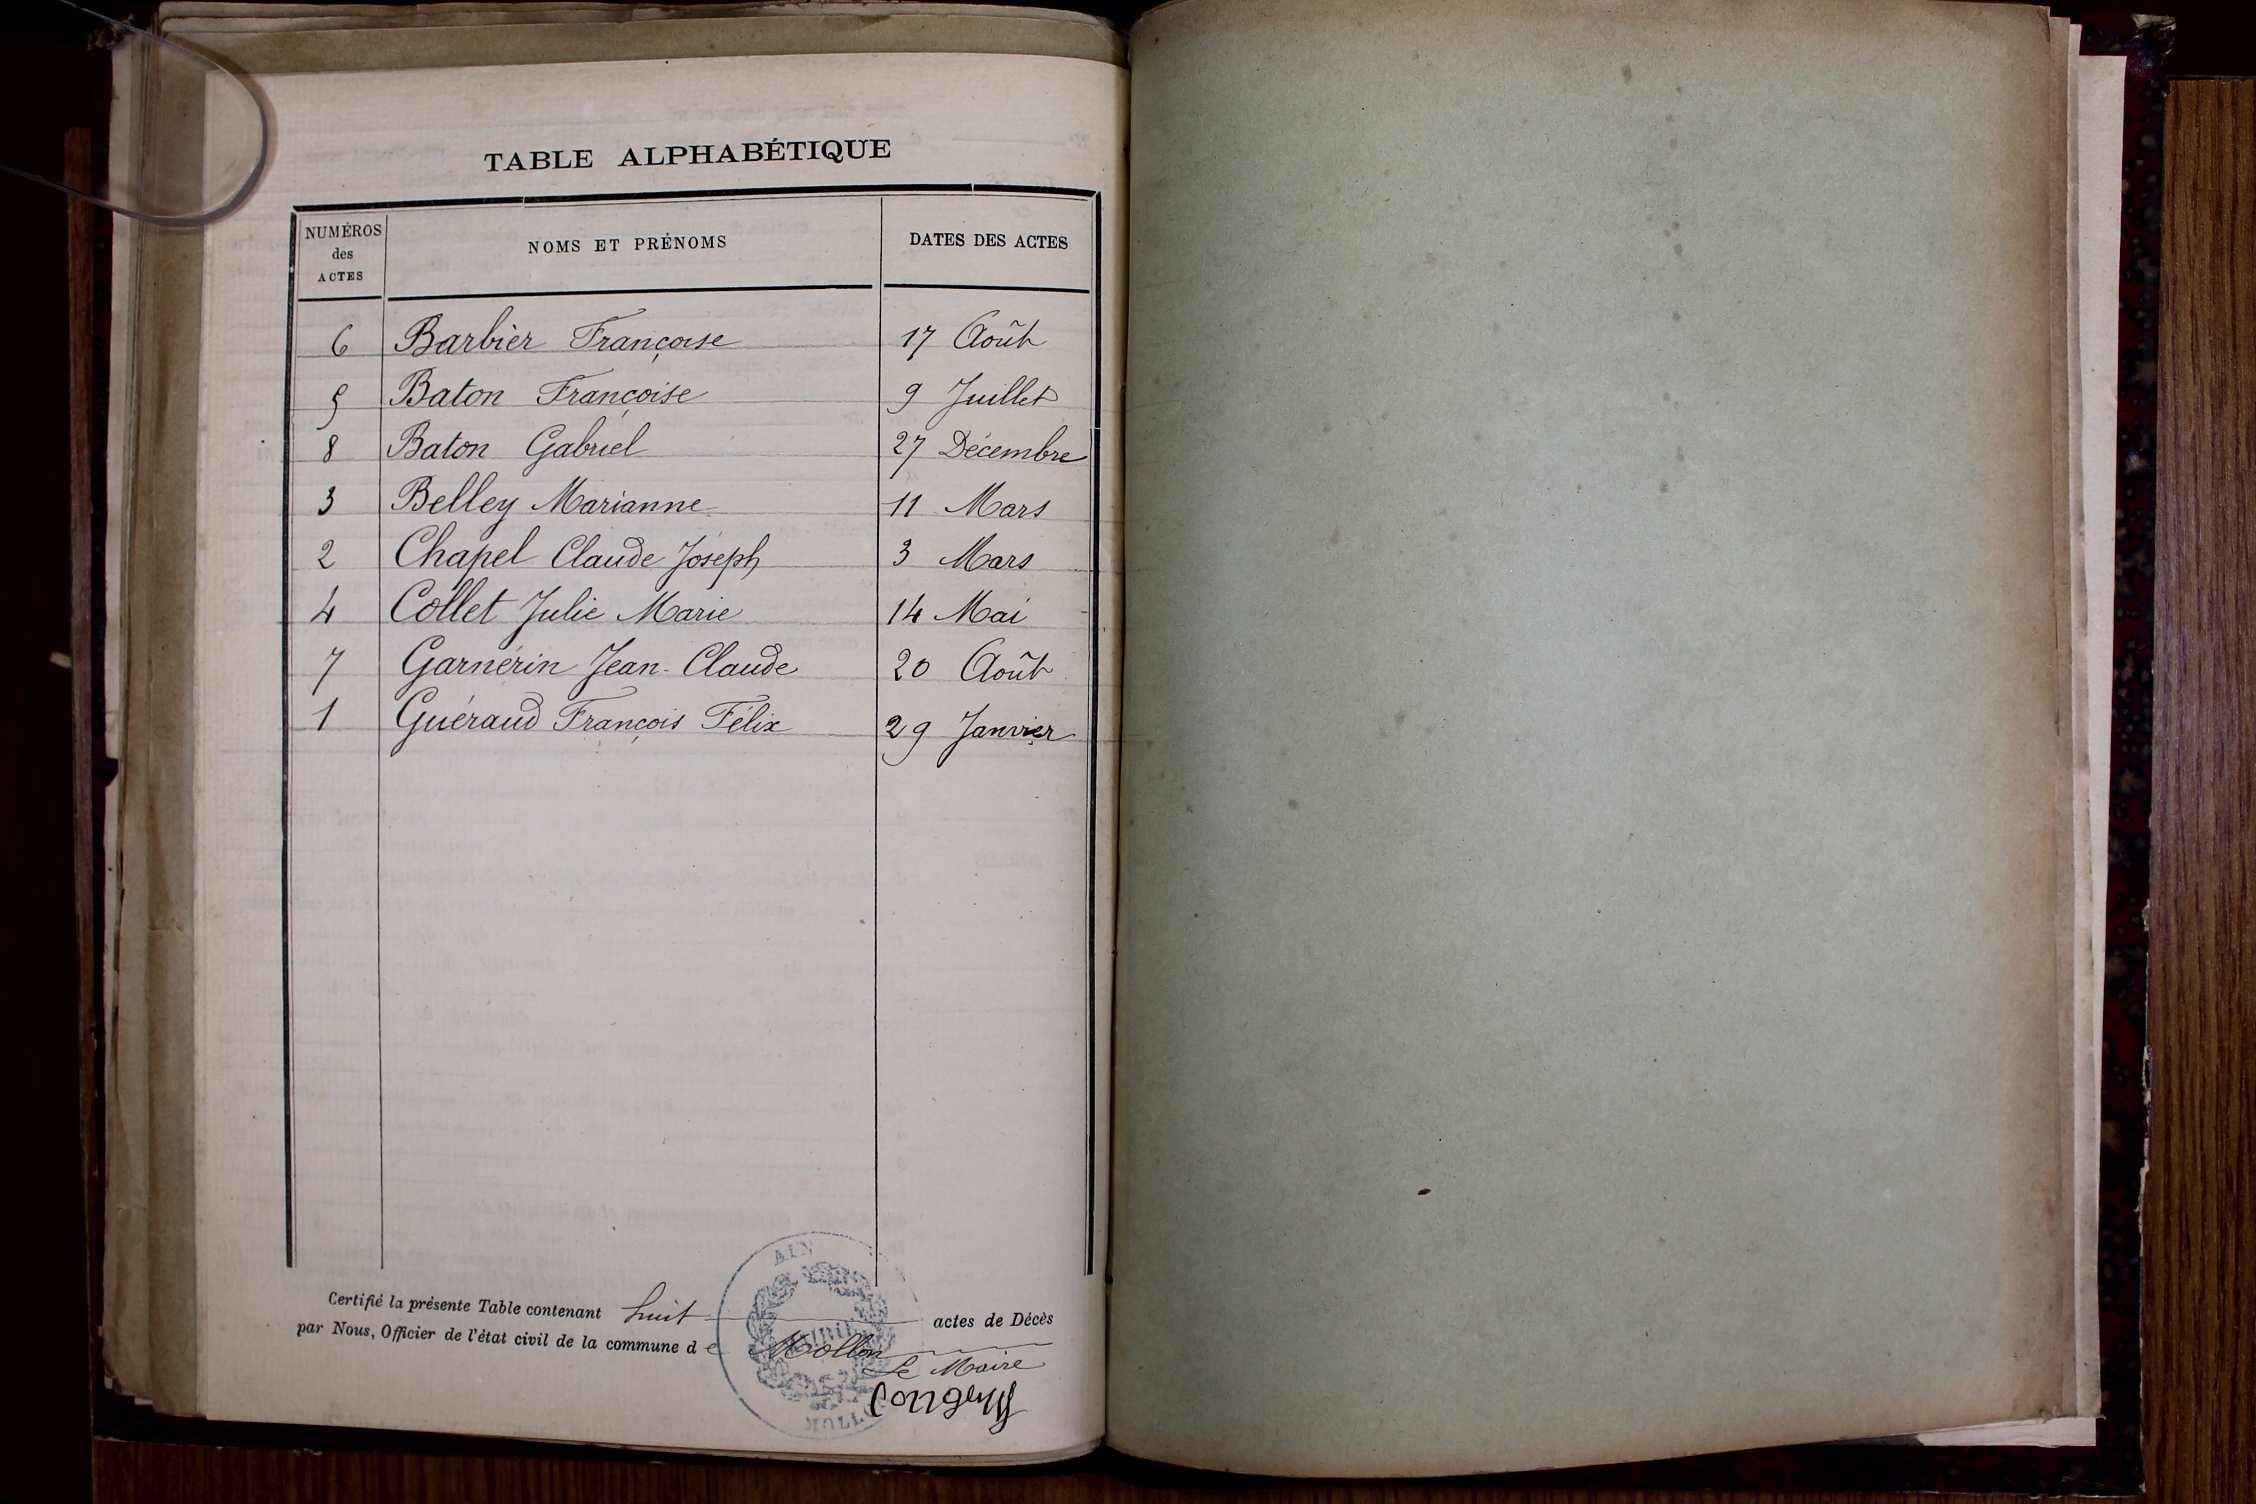 TABLE ALPHABÉTIQUE
NUMÉROS des ACTES NOMS ET PRÉNOMS DATES DES ACTES
6 Barbier Françoise 17 Août
5 Baton Françoise 9 Juillet
8 Baton Gabriel 27 Décembre
3 Belley Marianne 11 Mars
2 Chapel Claude Joseph 3 Mars
4 Collet Julie Marie 14 Mai
7 Garnerin Jean-Claude 20 Août
1 Guéraud François Félix 29 Janvier
AIN
Certifié la présente Table contenant huit actes de Décès
par Nous, Officier de l'état civil de la commune de Mollon
Le Maire